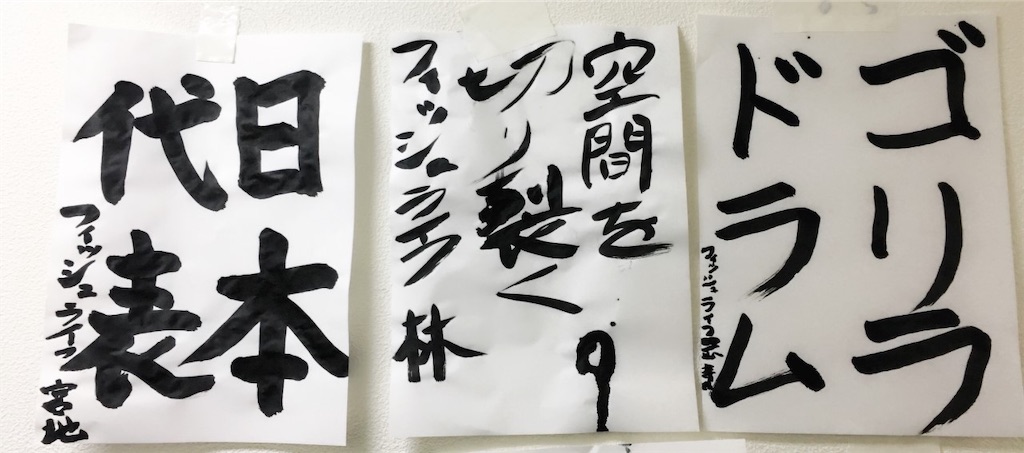 ゴリラ
ドラム
フィッシュライフ
空間を
切り製く
9
フィッシュライフ
林
日本
代表
フィッシュライフ 宮地